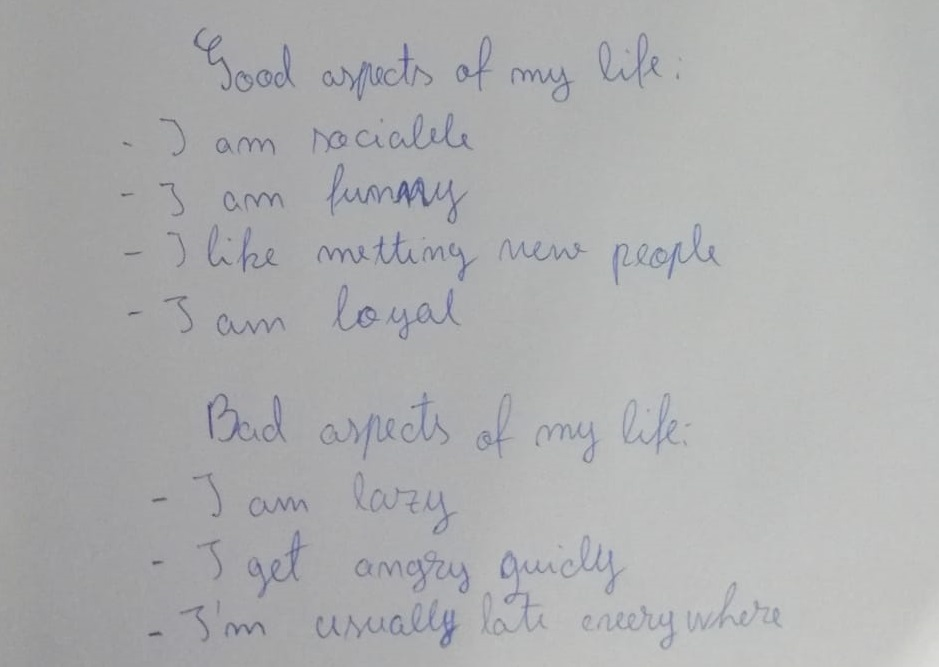 Good aspects of my life:
- I am sociable
- I am funny
- I like metting new people
- I am loyal
Bad aspects of my life:
- I am lazy
- I get angry quicly
- I'm usually late everywhere